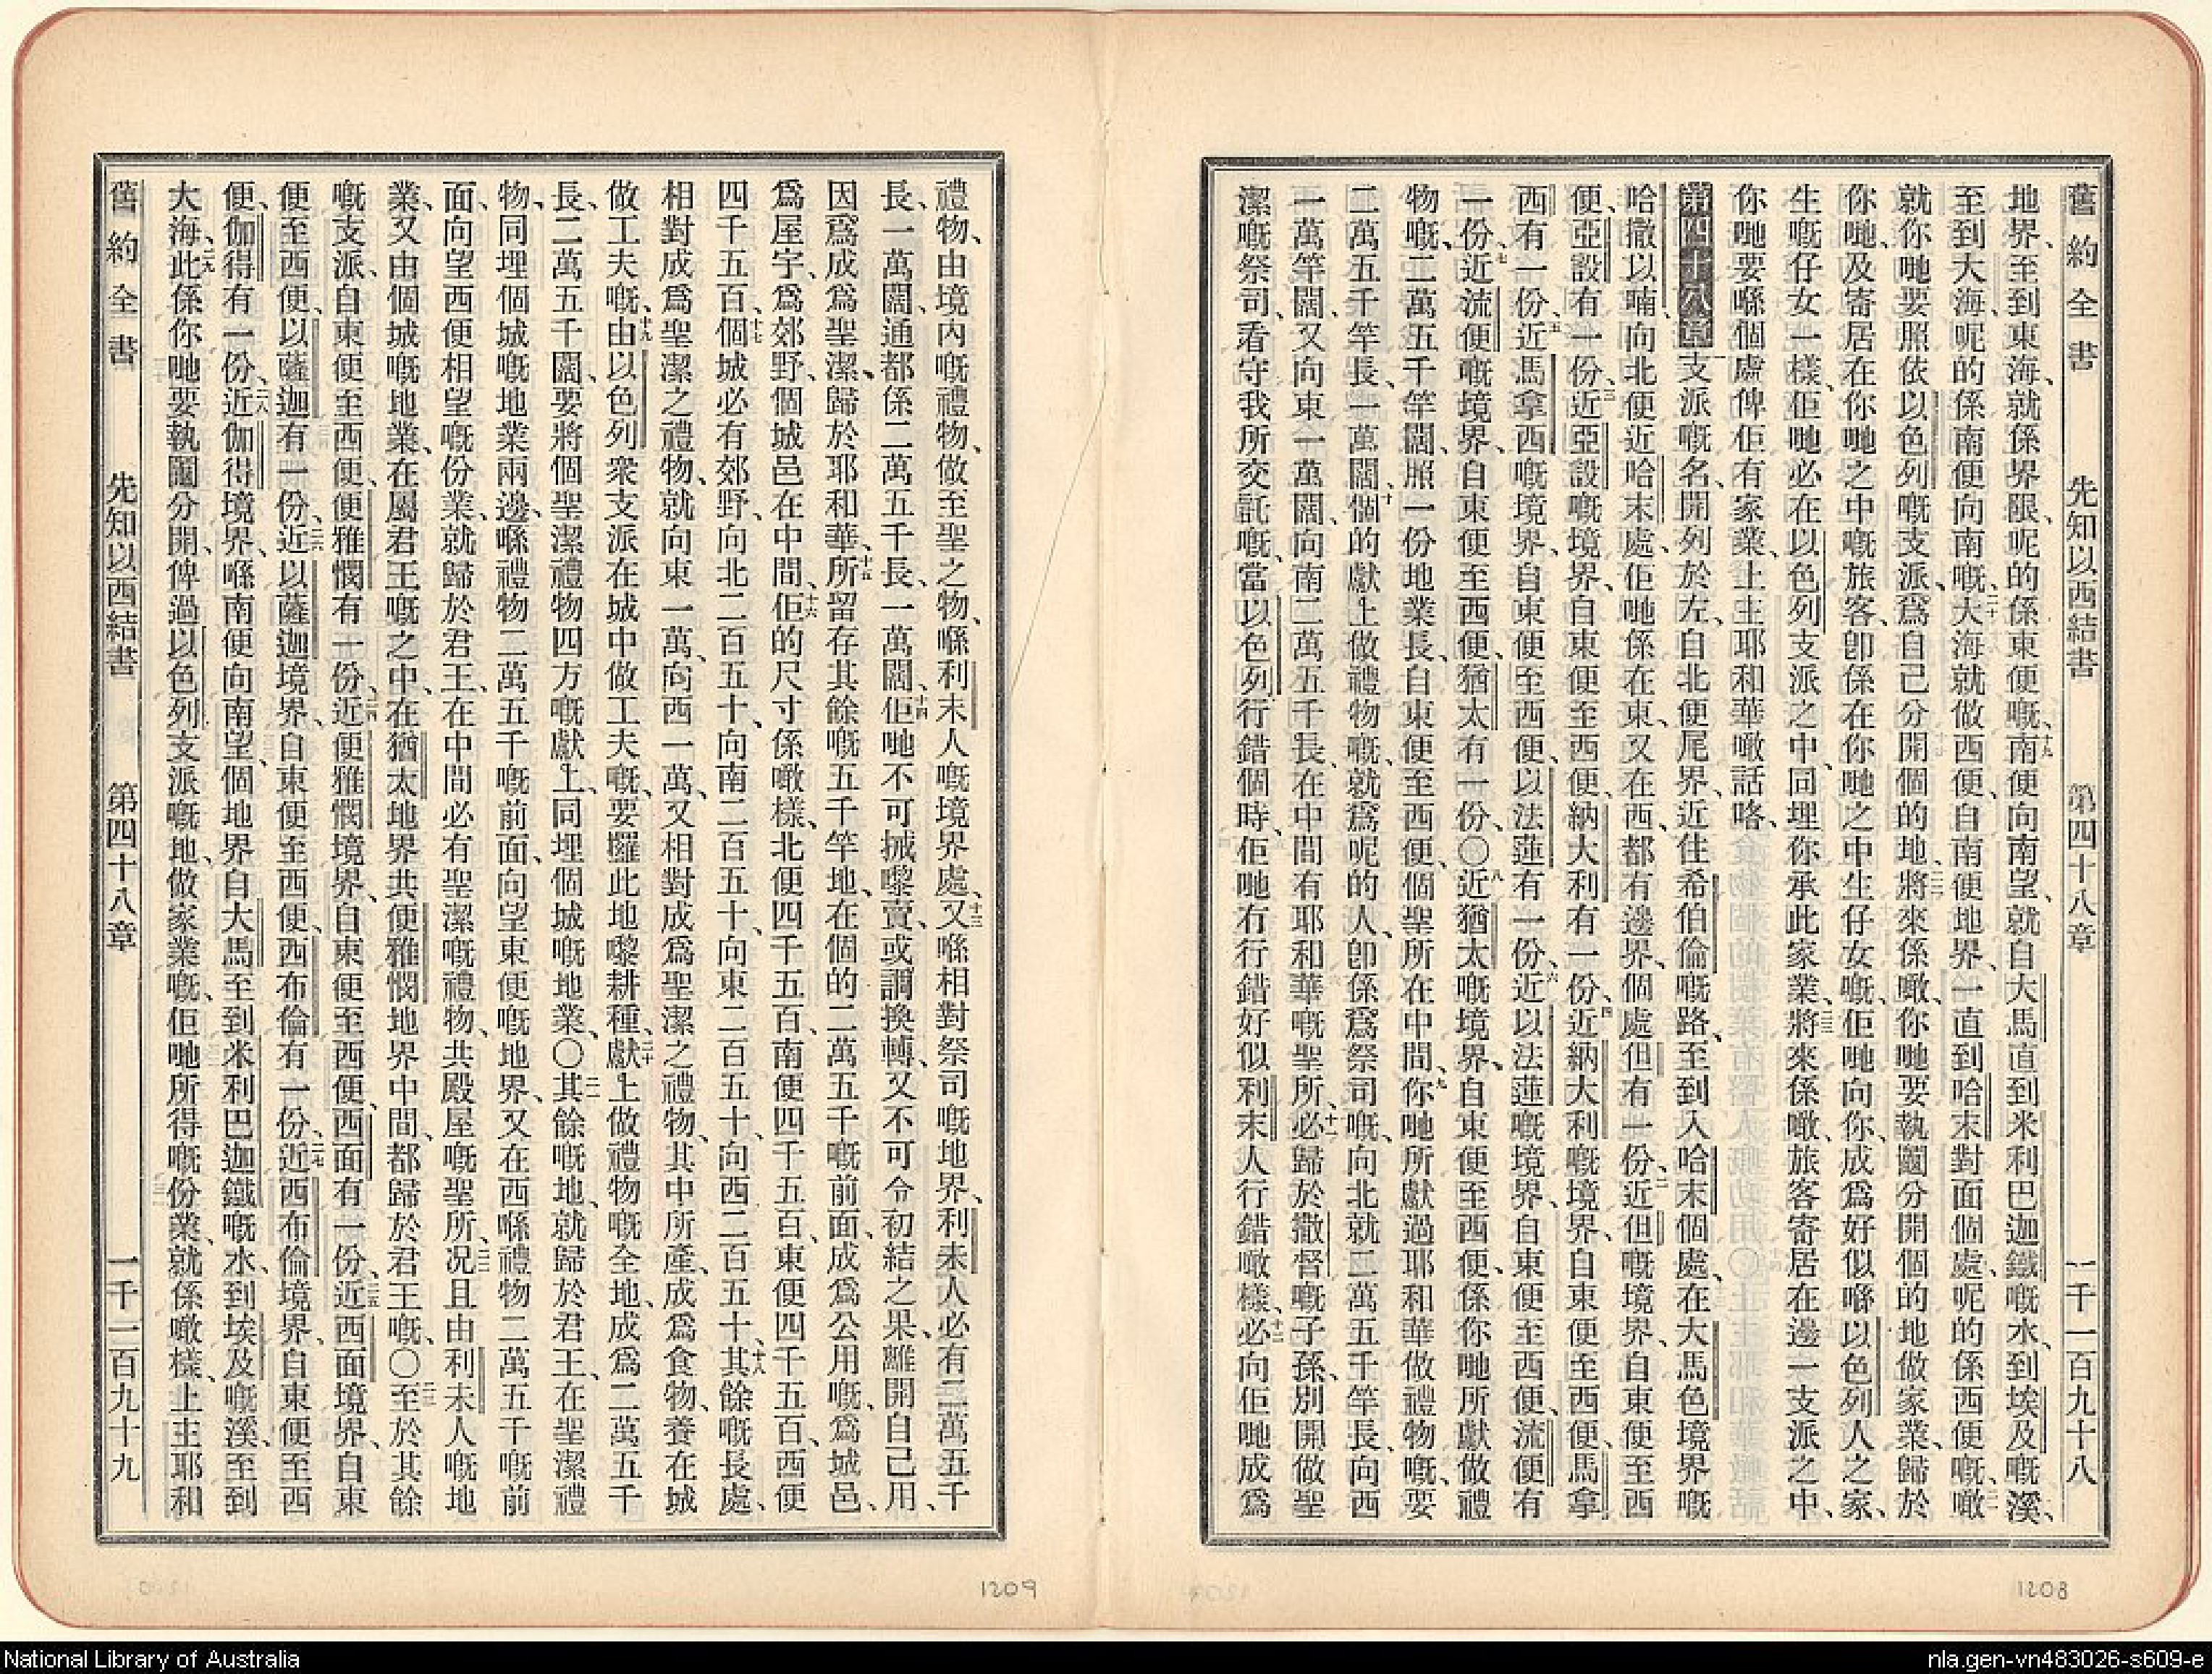 舊約全書 先知以西結書 第四十八章 一千一百九十八
地界、至到東海、就係界限、呢的係東便嘅、十九南便向南望、就自大馬直到米利巴迦鐵嘅水、到埃及嘅溪、
至到大海、呢的係南便向南嘅、二十大海就做西便、自南便地界、一直到哈末對面個處、呢的係西便嘅、二一噉
就你哋要照依以色列嘅支派、爲自己分開個的地、二二將來係噉、你哋要執鬮分開個的地做家業、歸於
你哋、及寄居在你哋之中嘅旅客、卽係在你哋之中生仔女嘅、佢哋向你、成爲好似喺以色列人之家、
生嘅仔女一樣、佢哋必在以色列支派之中、同埋你承此家業、二三將來係噉、旅客寄居在邊一支派之中、
你哋要喺個處俾佢有家業、上主耶和華噉話咯、
第四十八章一支派嘅名、開列於左、自北便尾界、近住希伯倫嘅路、至到入哈末個處、在大馬色境界嘅
哈撒以喃、向北便近哈末處、佢哋係在東、又在西、都有邊界、個處但有一份、二近但嘅境界、自東便至西
便、亞設有一份、三近亞設嘅境界、自東便至西便、納大利有一份、四近納大利嘅境界、自東便至西便、馬拿
西有一份、五近馬拿西嘅境界、自東便至西便、以法蓮有一份、六近以法蓮嘅境界、自東便至西便、流便有
一份、七近流便嘅境界、自東便至西便、猶太有一份、〇八近猶太嘅境界、自東便至西便、係你哋所獻做禮
物嘅、二萬五千竿闊、照一份地業長、自東便至西便、個聖所在中間、九你哋所獻過耶和華做禮物嘅、要
二萬五千竿長、一萬闊、十個的獻上做禮物嘅、就爲呢的人、卽係爲祭司嘅、向北就二萬五千竿長、向西
一萬竿闊、又向東一萬闊、向南二萬五千長、在中間有耶和華嘅聖所、十一必歸於撒督嘅子孫、別開做聖
潔嘅祭司、看守我所交託嘅、當以色列行錯個時、佢哋冇行錯好似利未人行錯噉樣、十二必向佢哋成爲
禮物、由境內嘅禮物、做至聖之物、喺利未人嘅境界處、十三又喺相對祭司嘅地界、利未人必有二萬五千
長、一萬闊、通都係二萬五千長、一萬闊、十四佢哋不可搣嚟賣、或調換轉、又不可令初結之果、離開自己用、
因爲成爲聖潔、歸於耶和華、十五所留存其餘嘅五千竿地、在個的二萬五千嘅前面、成爲公用嘅、爲城邑、
爲屋宇、爲郊野、個城邑在中間、十六佢的尺寸係噉樣、北便四千五百、南便四千五百、東便四千五百、西便
四千五百、十七個城必有郊野、向北二百五十、向南二百五十、向東二百五十、向西二百五十、十八其餘嘅長處、
相對成爲聖潔之禮物、就向東一萬、向西一萬、又相對成爲聖潔之禮物、其中所產、成爲食物、養在城
做工夫嘅、十九由以色列衆支派在城中做工夫嘅、要攞此地嚟耕種、二十獻上做禮物嘅全地、成爲二萬五千
長、二萬五千闊、要將個聖潔禮物四方嘅獻上、同埋個城嘅地業、〇二一其餘嘅地、就歸於君王、在聖潔禮
物、同埋個城嘅地業兩邊、喺禮物二萬五千嘅前面、向望東便嘅地界、又在西喺禮物二萬五千嘅前
面、向望西便相望嘅份業、就歸於君王、在中間必有聖潔嘅禮物、共殿屋嘅聖所、二二况且由利未人嘅地
業、又由個城嘅地業、在屬君王嘅之中、在猶太地界共便雅憫地界中間、都歸於君王嘅、〇二三至於其餘
嘅支派、自東便至西便、便雅憫有一份、二四近便雅憫境界、自東便至西便、西面有一份、二五近西面境界、自東
便至西便、以薩迦有一份、二六近以薩迦境界、自東便至西便、西布倫有一份、二七近西布倫境界、自東便至西
便、伽得有一份、二八近伽得境界、喺南便向南望、個地界自大馬至到米利巴迦鐵嘅水、到埃及嘅溪、至到
大海、二九此係你哋要執鬮分開、俾過以色列支派嘅地、做家業嘅、佢哋所得嘅份業、就係噉樣、上主耶和
舊約全書 先知以西結書 第四十八章 一千一百九十九
1209
1208
National Library of Australia
nla.gen-vn483026-s609-e